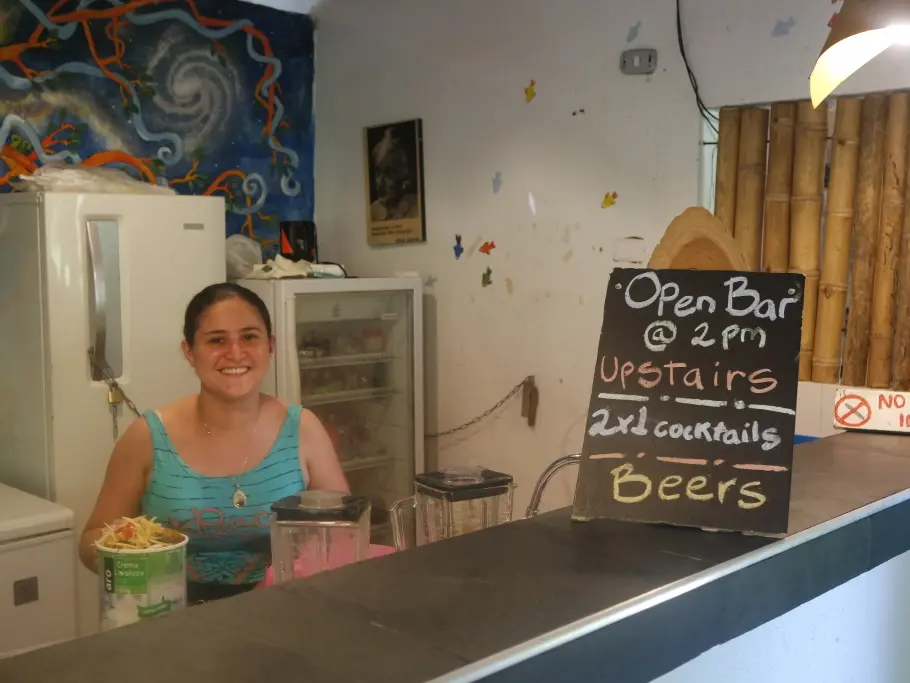 Open Bar
@ 2 pm
Upstairs
2x1 cocktails
Beers
NO
aro
Crema